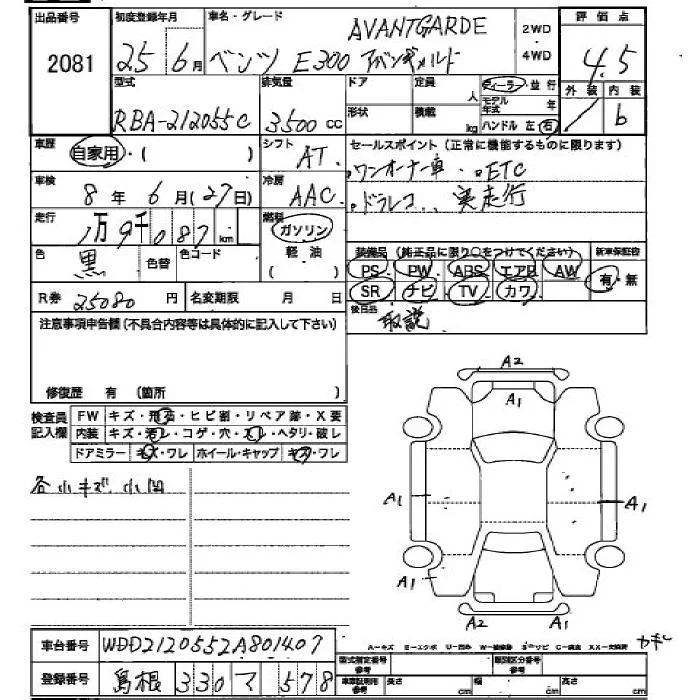 出品番号 初度登録年月 車名・グレード AVANTGARDE 2WD 評価点
2081 25年6月 ベンツ E300 アバンギャルド 4WD 4.5
外装 内装
b
型式 排気量 ドア 定員 人 ディーラー・並行
モデル年式 年
RBA-212055C 3500cc 形状 積載 kg ハンドル 左 右
車歴 自家用・( ) シフト AT. セールスポイント(正常に機能するものに限ります)
.ワンオーナー車 .ETC
車検 8年6月(27日) 冷房 AAC .ドラレコ... 実走行
走行 1万9千087km 燃料 ガソリン
軽油
( )
色 黒 色替 色コード
装備品(純正品に限り○をつけてください) 新車保証書
PS PW ABS エアB AW 有・無
SR ナビ TV カワ
R券 25080円 名変期限 月 日 後日品 取説
注意事項申告欄(不具合内容等は具体的に記入して下さい)
修復歴 有 (箇所 )
検査員記入欄 FW キズ・飛石・ヒビ割・リペア跡・X要
内装 キズ・汚レ・コゲ・穴・スレ・ヘタリ・破レ
ドアミラー キズ・ワレ ホイール・キャップ キズ・ワレ
各小キズ.小凹
A2
A1
A1
A1
A1
A2 A1
車台番号 WDD2120552A801407
登録番号 島根 330 マ 578
A-キズ E-エクボ U-凹み W-補修跡 S-サビ C-腐食 XX-交換済
型式指定番号 参考 類別区分番号 参考
車庫証明用 参考 長さ cm 幅 cm 高さ cm